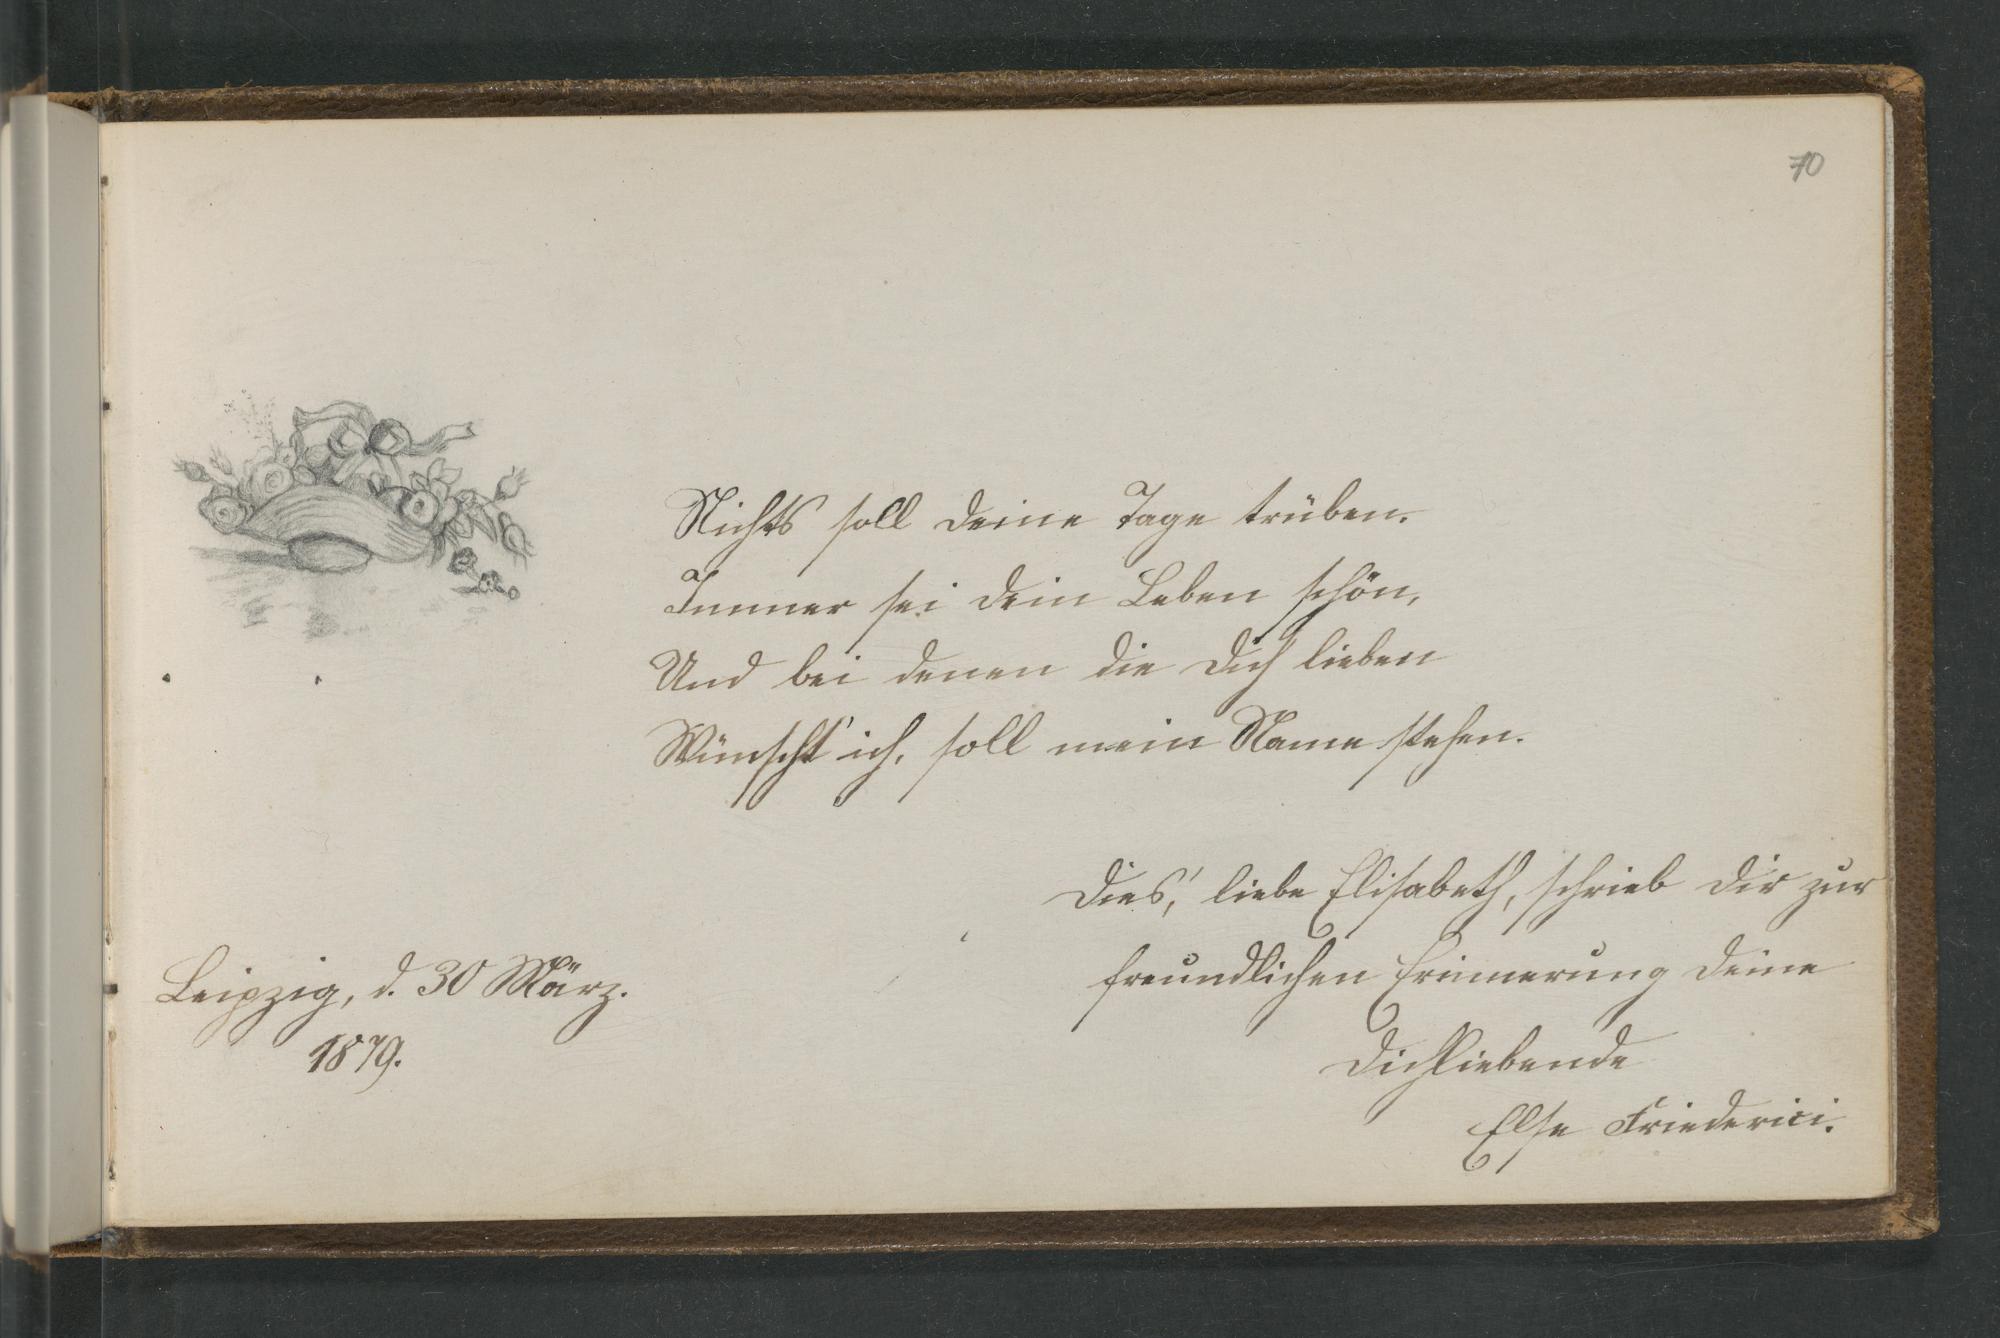 70
Nichts soll deine Tage trüben.
Immer sei dein Leben schön,
Und bei denen die Dich lieben
Wünscht' ich, soll mein Name stehen.
Dies, liebe Elisabeth, schrieb Dir zur
freundlichen Erinnerung Deine
Dichliebende
Else Friederici.
Leipzig, d. 30 März.
1879.